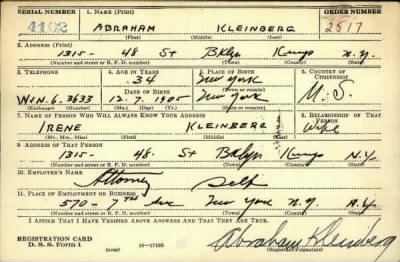 SERIAL NUMBER 1. NAME (Print) ORDER NUMBER
4102 ABRAHAM KLEINBERG 2517
(First) (Middle) (Last)
2. ADDRESS (Print)
1315- 48 St Bklyn Kings N.Y.
(Number and street or R. F. D. number) (Town) (County) (State)
3. TELEPHONE 4. AGE IN YEARS 5. PLACE OF BIRTH 6. COUNTRY OF CITIZENSHIP
34 New York
DATE OF BIRTH (Town or county)
WIN.6.3633 12.7.1905 New York U.S.
(Exchange) (Number) (Mo.) (Day) (Yr.) (State or country)
7. NAME OF PERSON WHO WILL ALWAYS KNOW YOUR ADDRESS 8. RELATIONSHIP OF THAT PERSON
IRENE KLEINBERG Wife
(Mr., Mrs., Miss) (First) (Middle) (Last)
9. ADDRESS OF THAT PERSON
1315- 48. St Bklyn Kings N.Y.
(Number and street or R. F. D. number) (Town) (County) (State)
10. EMPLOYER'S NAME
Attorney Self
11. PLACE OF EMPLOYMENT OR BUSINESS
570- 7TH Ave New York N.Y. N.Y.
(Number and street or R. F. D. number) (Town) (County) (State)
I AFFIRM THAT I HAVE VERIFIED ABOVE ANSWERS AND THAT THEY ARE TRUE.
REGISTRATION CARD
D. S. S. Form 1 (over) 16-17105 Abraham Kleinberg
(Registrant's signature)